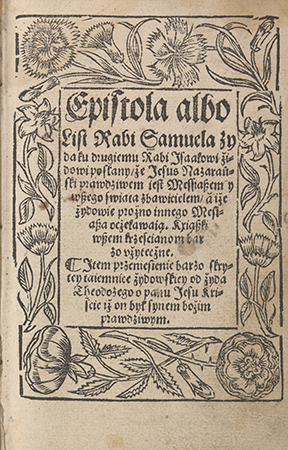 Epistola albo
List Rabi Samuela ży
da ku drugiemu Rabi Isaakowi ży
dowi posłany/ że Jesus Nazarań⸗
ski prawdziwem iest Messiaszem y
wszego swiata zbawicielem/ a iże
żydowie prożno innego Mesi⸗
asza oczekawaią. Kxiążki
wszem krześcianom bar
zo użyteczne.
¶ Item przeniesienie barzo skry⸗
tey taiemnice żydowskiey od żyda
Theodozego o panu Jesu Kri⸗
ście iż on był synem bożim
prawdziwym.